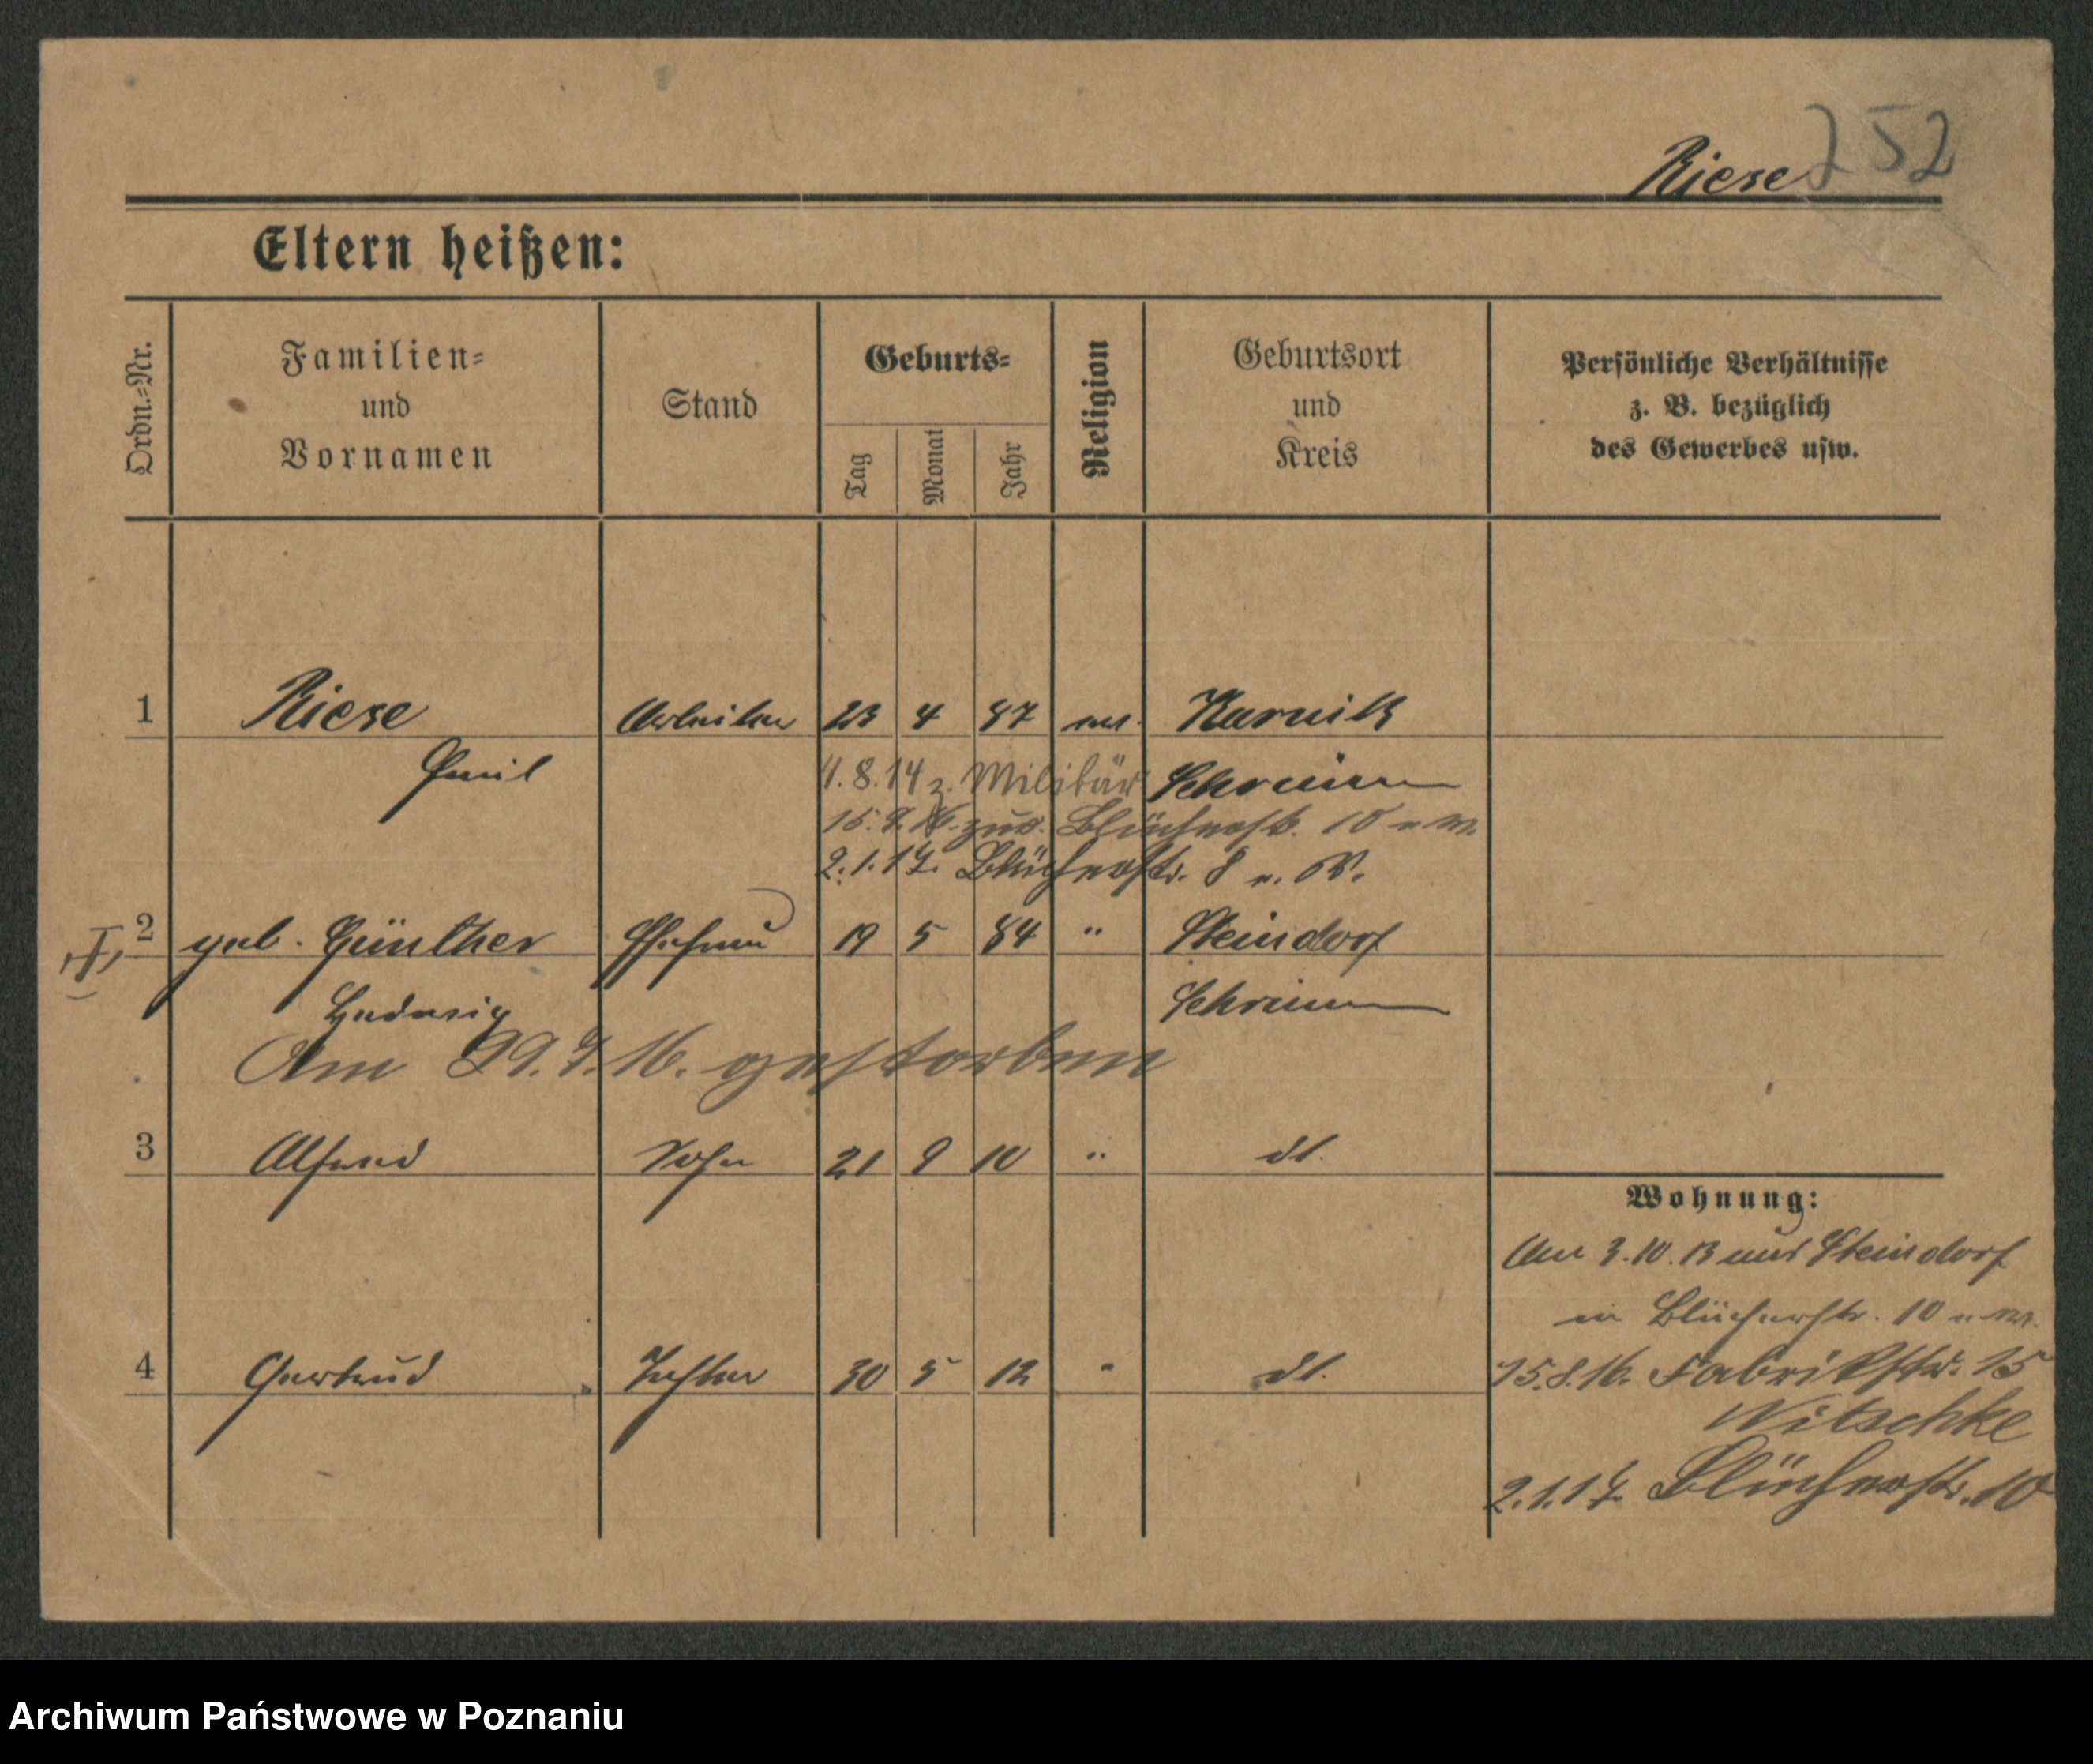 252
Riese
Eltern heißen:
Ordn.-Nr.
Familien- und Vornamen
Stand
Geburts-
Tag
Monat
Jahr
Religion
Geburtsort und Kreis
Persönliche Verhältnisse
z. B. bezüglich
des Gewerbes usw.
1 Riese Arbeiter 23 4 87 ev. Kurnik
Emil Schrimm
4.8.14 z. Militär
zur. Blücherstr. 10 u. W.
2.1.17. Blücherstr. 8 u. W.
2 geb. Günther Ehefrau 19 5 84 " Steindorf
Hedwig Schrimm
Am 29.7.16. gestorben
3 Alfred Sohn 21 9 10 " dt.
Wohnung:
Am 3.10.13 aus Steindorf
in Blücherstr. 10
4 Gertrud Tochter 30 5 12 " dt.
15.8.16. Fabrikstr. 15
Nitschke
2.1.17. Blücherstr. 10
Archiwum Państwowe w Poznaniu